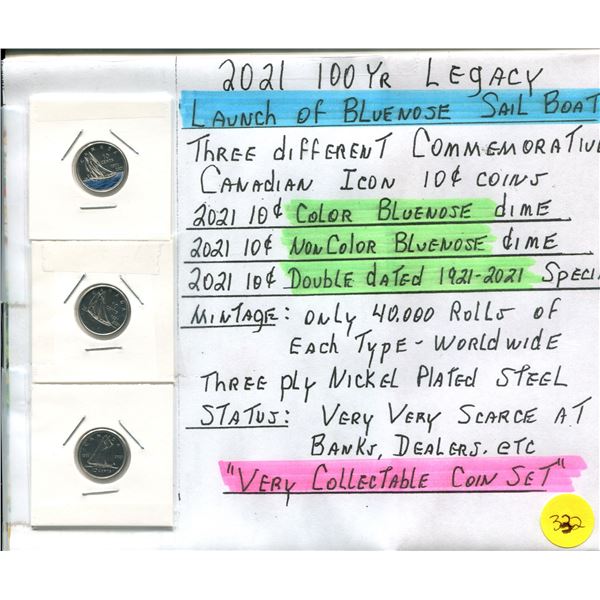 2021 100 Yr Legacy
Launch of Bluenose Sail Boat
Three different Commemorative
Canadian Icon 10¢ coins
2021 10¢ Color Bluenose dime
2021 10¢ NonColor Bluenose dime
2021 10¢ Double dated 1921-2021 Speci
Mintage: only 40.000 Rolls of
Each Type - Worldwide
Three ply Nickel Plated Steel
Status: Very Very Scarce at
Banks, Dealers. etc
"Very Collectable Coin Set"
332